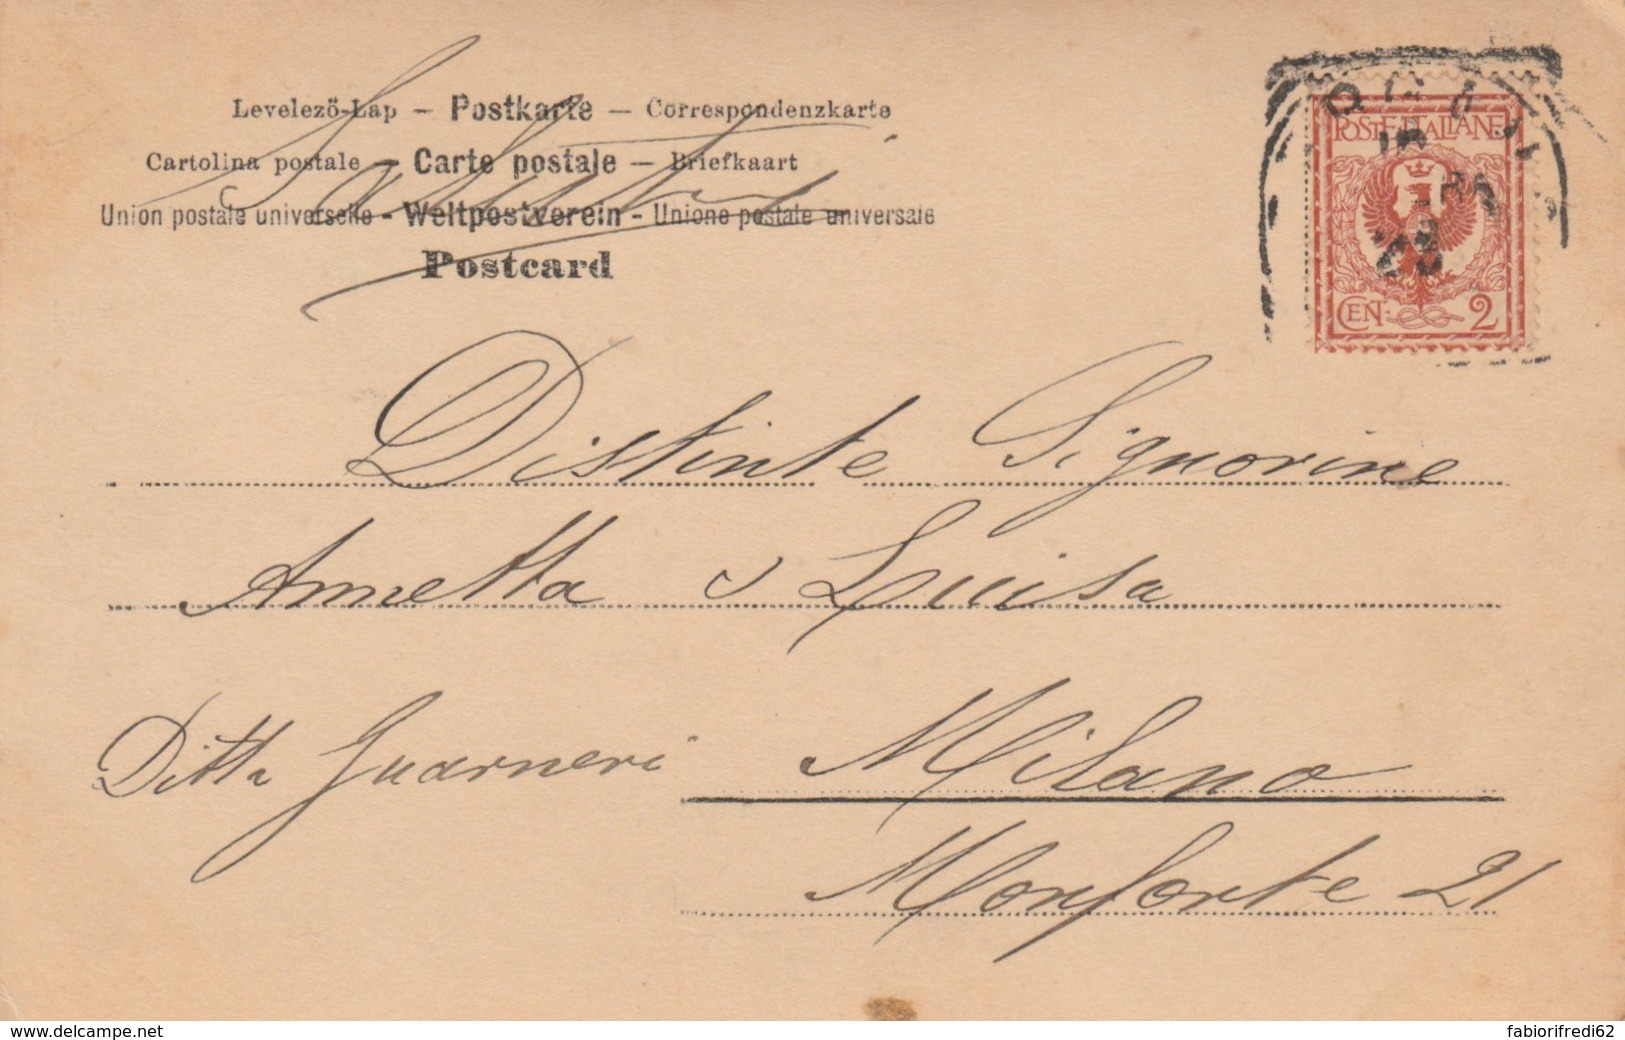 Levelező-Lap – Postkarte – Correspondenzkarte
Cartolina postale – Carte postale – Briefkaart
Union postale universelle - Weltpostverein - Unione postale universale
Postcard
Saluti
POSTE ITALIANE
CENT: 2
Distinte Signorine
Annetta e Luisa
Ditta Guarneri
Milano
Monforte 21
www.delcampe.net
fabiorifredi62